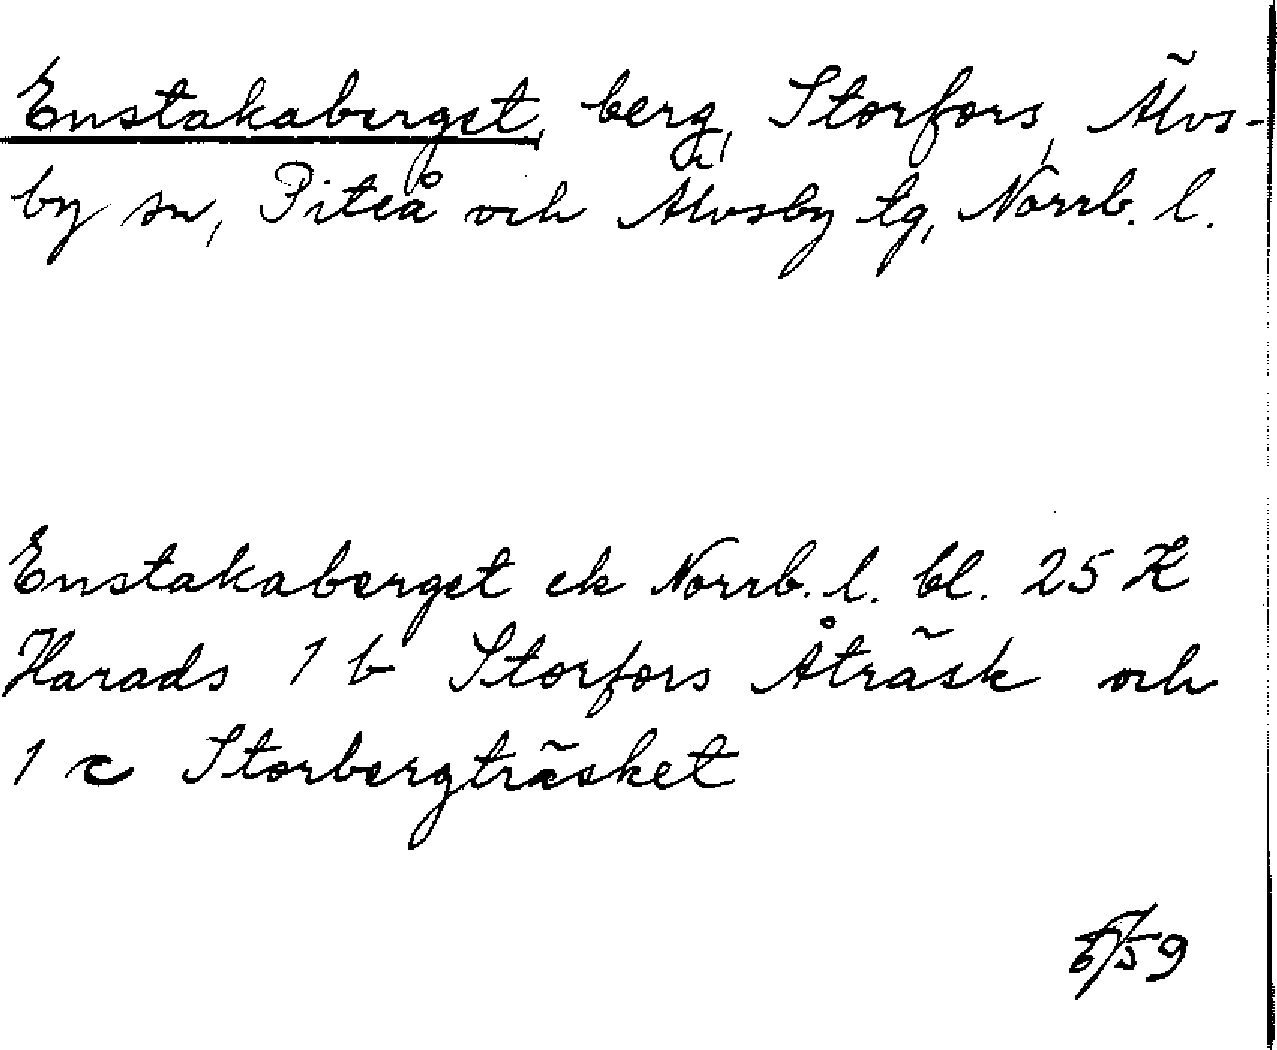 Enstakaberget, berg, Storfors, Älvs-
by sn, Piteå och Älvsby tg, Norrb. l.
Enstakaberget ek Norrb. l. bl. 25 K
Harads 1 b Storfors Åträsk och
1 c Storbergträsket